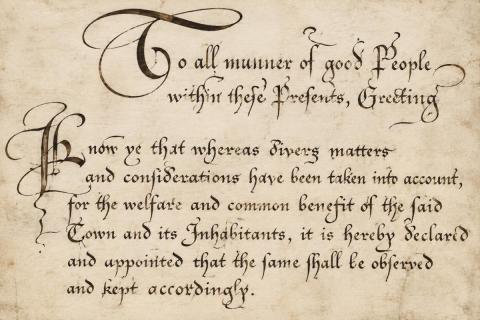 To all munner of good People
within these Presents, Greeting
Know ye that whereas divers matters
and considerations have been taken into account,
for the welfare and common benefit of the said
Town and its Inhabitants, it is hereby declared
and appointed that the same shall be observed
and kept accordingly.